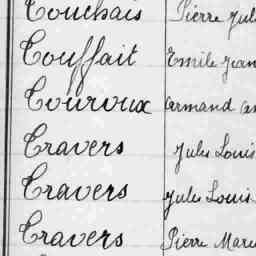 Touchais Pierre Jul
Touffait Emile Jean
Touroux Armand
Travers Jules Louis
Travers Jules Louis
Travers Pierre Marie